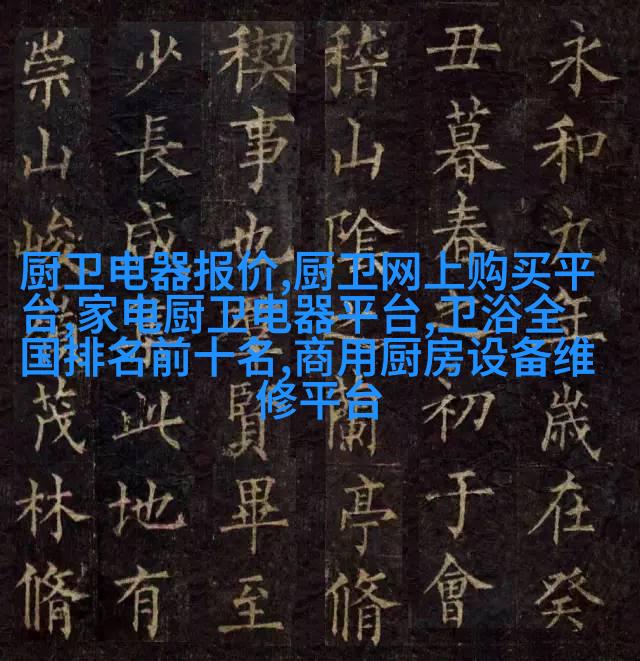 厨卫电器报价,厨卫网上购买平
台,家电厨卫电器平台,卫浴全
国排名前十名,商用厨房设备维
修平台
永和九年歲在癸
丑暮春之初于會
稽山陰之蘭亭脩
禊事也賢畢至
少長咸此地有
崇山峻茂林脩